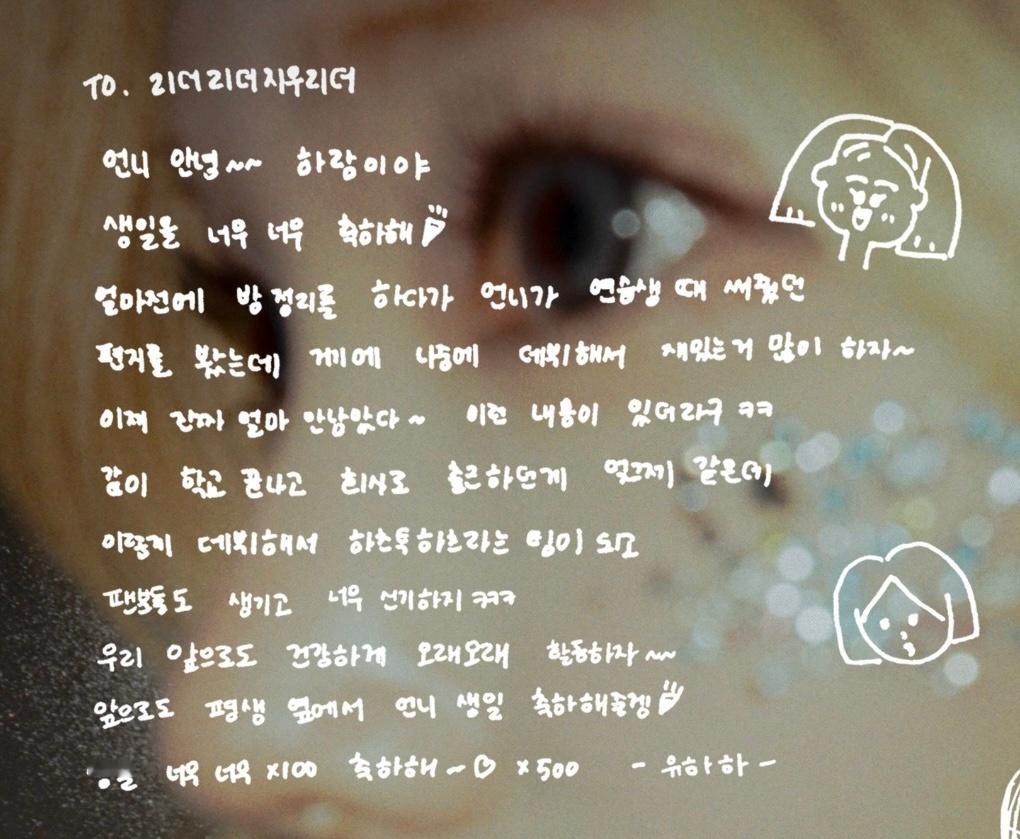 TO. 리더리더지우리더
언니 안녕~~ 하람이야
생일을 너무 너무 축하해
얼마전에 방정리를 하다가 언니가 연습생 때 써줬던
편지를 봤는데 거기에 나중에 데뷔해서 재밌는거 많이 하자~
이제 진짜 얼마 안남았다~ 이런 내용이 있더라구 ㅋㅋ
같이 학교 끝나고 회사로 출근하던게 엊그제 같은데
이렇게 데뷔해서 하츠투하츠라는 팀이 되고
팬분들도 생기고 너무 신기하지 ㅋㅋㅋ
우리 앞으로도 건강하게 오래오래 활동하자 ~~
앞으로도 평생 옆에서 언니 생일 축하해줄겡
오늘 너무 너무 x100 축하해~♡ x500 - 유하하 -